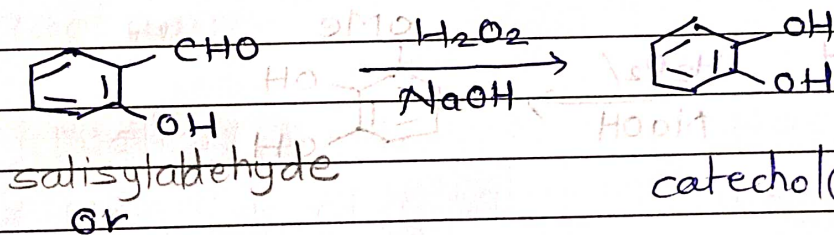 CHO H2O2 OH
NaOH OH
OH
salisylaldehyde catechol(
or